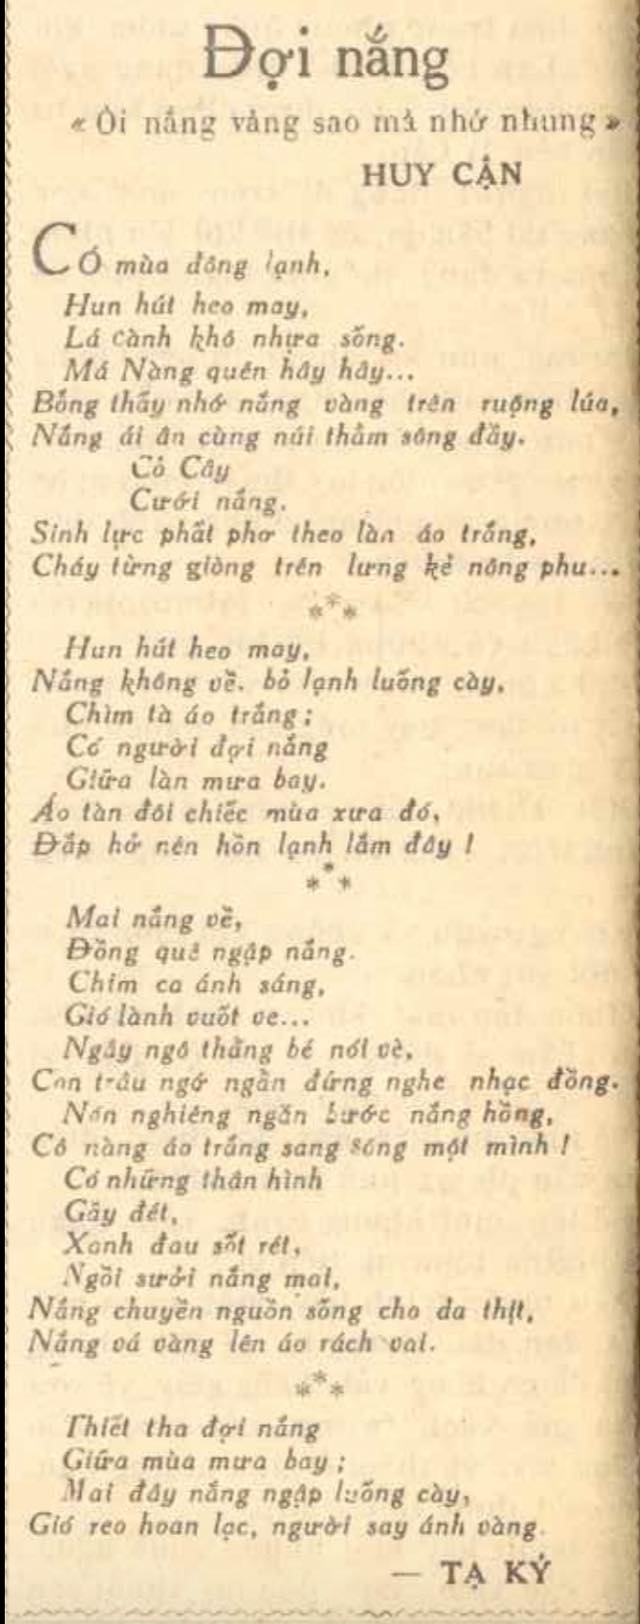 Đợi nắng
« Ôi nắng vàng sao mà nhớ nhung »
HUY CẬN
CÓ mùa đông lạnh,
Hun hút heo may,
Lá cành khô nhựa sống.
Má Nàng quên hây hây...
Bỗng thấy nhớ nắng vàng trên ruộng lúa,
Nắng ái ân cùng núi thẳm sông đầy.
Cỏ Cây
Cưới nắng.
Sinh lực phất phơ theo làn áo trắng,
Cháy từng giòng trên lưng kẻ nông phu...
***
Hun hút heo may,
Nắng không về. bỏ lạnh luống cày,
Chìm tà áo trắng ;
Có người đợi nắng
Giữa làn mưa bay.
Áo tàn đôi chiếc mùa xưa đó,
Đắp hở nên hồn lạnh lắm đây !
***
Mai nắng về,
Đồng quê ngập nắng.
Chim ca ánh sáng,
Gió lành vuốt ve...
Ngây ngô thằng bé nói vè,
Con trâu ngớ ngẩn đứng nghe nhạc đồng.
Nón nghiêng ngăn bước nắng hồng,
Cô nàng áo trắng sang sông một mình !
Có những thân hình
Gầy đét,
Xanh đau sốt rét,
Ngồi sưởi nắng mai,
Nắng chuyền nguồn sống cho da thịt,
Nắng vá vàng lên áo rách vai.
***
Thiết tha đợi nắng
Giữa mùa mưa bay ;
Mai đây nắng ngập luống cày,
Gió reo hoan lạc, người say ánh vàng.
— TẠ KÝ